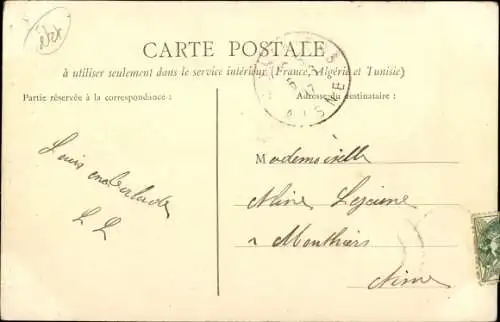 CARTE POSTALE
à utiliser seulement dans le service intérieur (France, Algérie et Tunisie)
Partie réservée à la correspondance :
Adresse du destinataire :
AISNE
Mademoiselle
Aline Lejeune
à Monthiers
Aisne
Suis en balade
L L